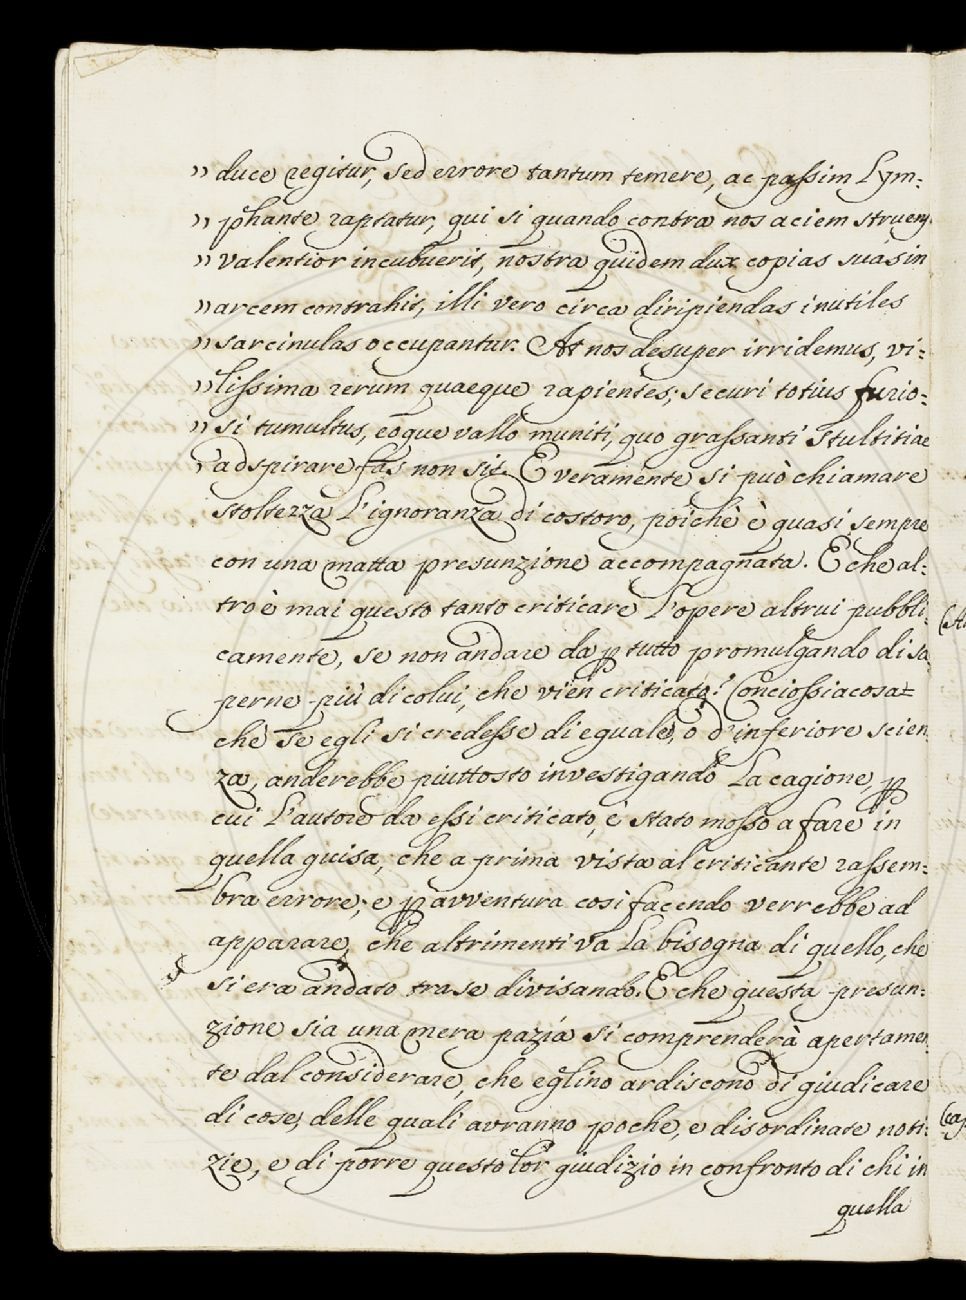 ” duce regitur, sed errore tantum temere, ac passim Lym:
” phante raptatur, qui si quando contra nos aciem struens
” valentior incubuerit, nostra quidem dux copias suas in
” arcem contrahit, illi vero circa diripiendas inutiles
” sarcinulas occupantur. At nos desuper irridemus, vi:
” lissima rerum quaeque rapientes; securi totius furio:
” si tumultus, eoque vallo muniti, quo grassanti Stultitiae
” adspirare fas non sit. E veramente si può chiamare
stoltezza l'ignoranza di costoro, poichè è quasi sempre
con una matta presunzione accompagnata. E che al:
tro è mai questo tanto criticare l'opere altrui pubbli:
camente, se non andare da p tutto promulgando di sa:
perne più di colui, che vien criticato? Conciossiacosa=
chè se egli si credesse di eguale, o d'inferiore scien
za, anderebbe piuttosto investigando la cagione, p
cui l'autore da essi criticato, è stato mosso a fare in
quella guisa, che a prima vista al criticante rassem:
bra errore; e p avventura così facendo verrebbe ad
apparare, che altrimenti va la bisogna di quello, che
si era andato tra se divisando. E che questa presun:
zione sia una mera pazìa si comprenderà apertamen
te dal considerare, che eglino ardiscono di giudicare
di cose, delle quali avranno poche, e disordinate noti:
zie, e di porre questo lor giudizio in confronto di chi in
quella